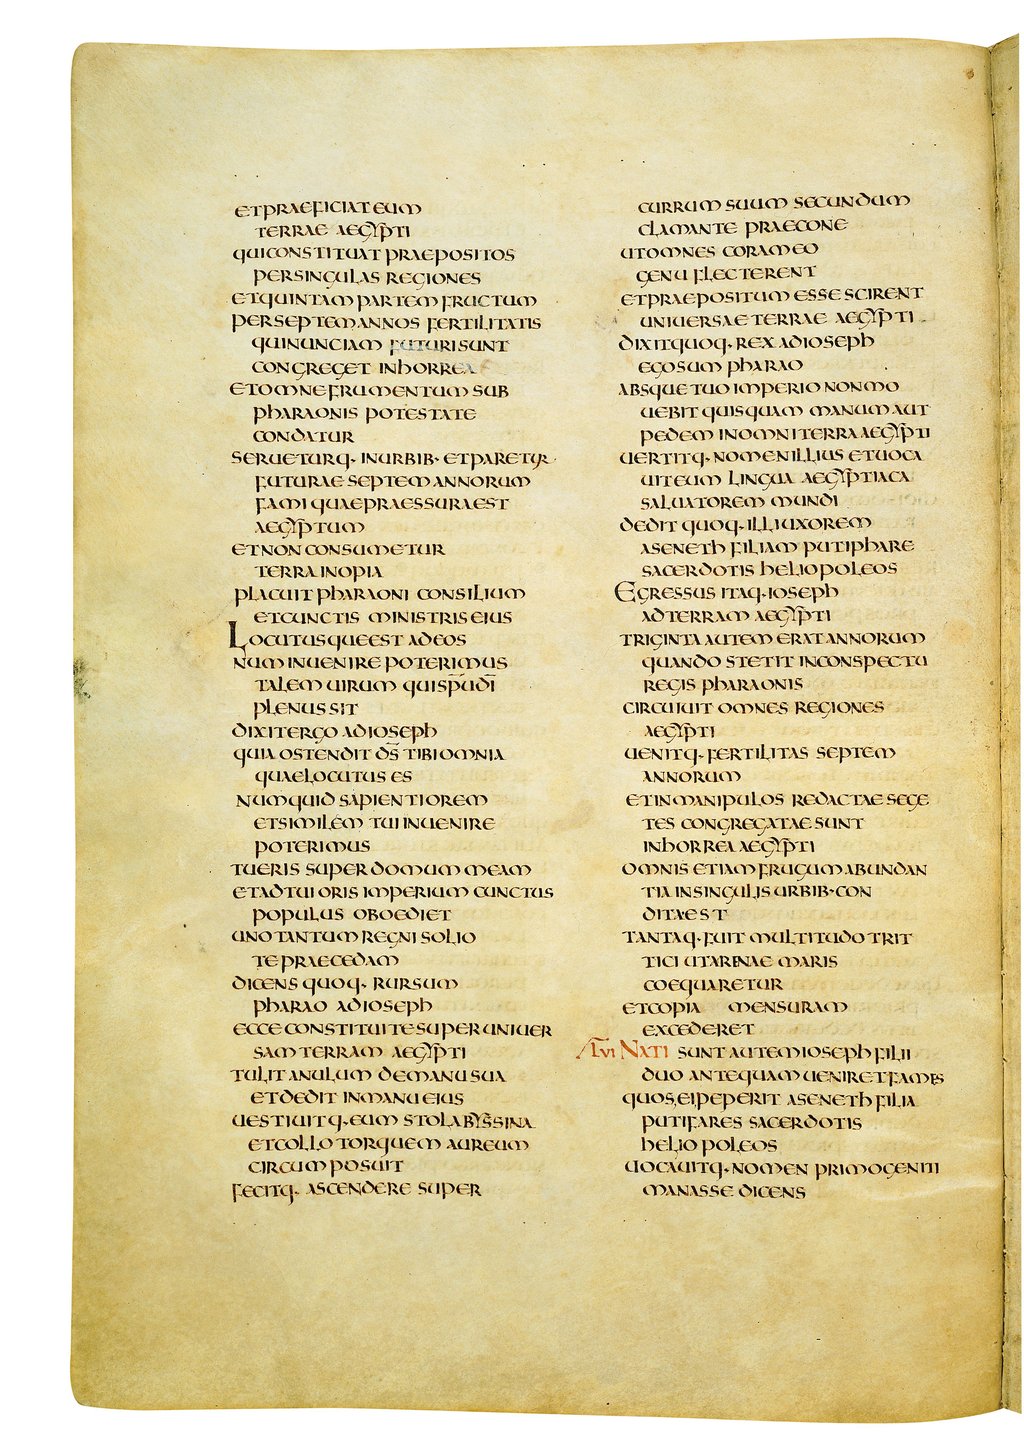 ET PRAEFICIAT EUM
TERRAE AEGYPTI
QUI CONSTITUAT PRAEPOSITOS
PER SINGULAS REGIONES
ET QUINTAM PARTEM FRUCTUM
PER SEPTEM ANNOS FERTILITATIS
QUI NUNC IAM FUTURI SUNT
CONGREGET IN HORREA
ET OMNE FRUMENTUM SUB
PHARAONIS POTESTATE
CONDATUR
SERUETURQ· IN URBIB· ET PARETUR
FUTURAE SEPTEM ANNORUM
FAMI QUAE PRAESSURA EST
AEGYPTUM
ET NON CONSUMETUR
TERRA INOPIA
PLACUIT PHARAONI CONSILIUM
ET CUNCTIS MINISTRIS EIUS
LOCUTUSQUE EST AD EOS
NUM INUENIRE POTERIMUS
TALEM UIRUM QUI SP̅U D̅I
PLENUS SIT
DIXIT ERGO AD IOSEPH
QUIA OSTENDIT D̅S̅ TIBI OMNIA
QUAE LOCUTUS ES
NUMQUID SAPIENTIOREM
ET SIMILEM TUI INUENIRE
POTERIMUS
TU ERIS SUPER DOMUM MEAM
ET AD TUI ORIS IMPERIUM CUNCTUS
POPULUS OBOEDIET
UNO TANTUM REGNI SOLIO
TE PRAECEDAM
DICENS QUOQ· RURSUM
PHARAO AD IOSEPH
ECCE CONSTITUI TE SUPER UNIUER
SAM TERRAM AEGYPTI
TULIT ANULUM DE MANU SUA
ET DEDIT IN MANU EIUS
UESTIUITQ· EUM STOLA BYSSINA
ET COLLO TORQUEM AUREUM
CIRCUMPOSUIT
FECITQ· ASCENDERE SUPER
CURRUM SUUM SECUNDUM
CLAMANTE PRAECONE
UT OMNES CORAM EO
GENU FLECTERENT
ET PRAEPOSITUM ESSE SCIRENT
UNIUERSAE TERRAE AEGYPTI
DIXIT QUOQ· REX AD IOSEPH
EGO SUM PHARAO
ABSQUE TUO IMPERIO NON MO
UEBIT QUISQUAM MANUM AUT
PEDEM IN OMNI TERRA AEGYPTI
UERTITQ· NOMEN ILLIUS ET UOCA
UIT EUM LINGUA AEGYPTIACA
SALUATOREM MUNDI
DEDIT QUOQ· ILLI UXOREM
ASENETH FILIAM PUTIPHARE
SACERDOTIS HELIOPOLEOS
EGRESSUS ITAQ· IOSEPH
AD TERRAM AEGYPTI
TRIGINTA AUTEM ERAT ANNORUM
QUANDO STETIT IN CONSPECTU
REGIS PHARAONIS
CIRCUIUIT OMNES REGIONES
AEGYPTI
UENITQ· FERTILITAS SEPTEM
ANNORUM
ET IN MANIPULOS REDACTAE SEGE
TES CONGREGATAE SUNT
IN HORREA AEGYPTI
OMNIS ETIAM FRUGUM ABUNDAN
TIA IN SINGULIS URBIB· CON
DITA EST
TANTAQ· FUIT MULTITUDO TRIT
TICI UT ARENAE MARIS
COEQUARETUR
ET COPIA MENSURAM
EXCEDERET
L̅VI NATI SUNT AUTEM IOSEPH FILII
DUO ANTEQUAM UENIRET FAMES
QUOS EI PEPERIT ASENETH FILIA
PUTIFARES SACERDOTIS
HELIOPOLEOS
UOCAUITQ· NOMEN PRIMOGENITI
MANASSE DICENS